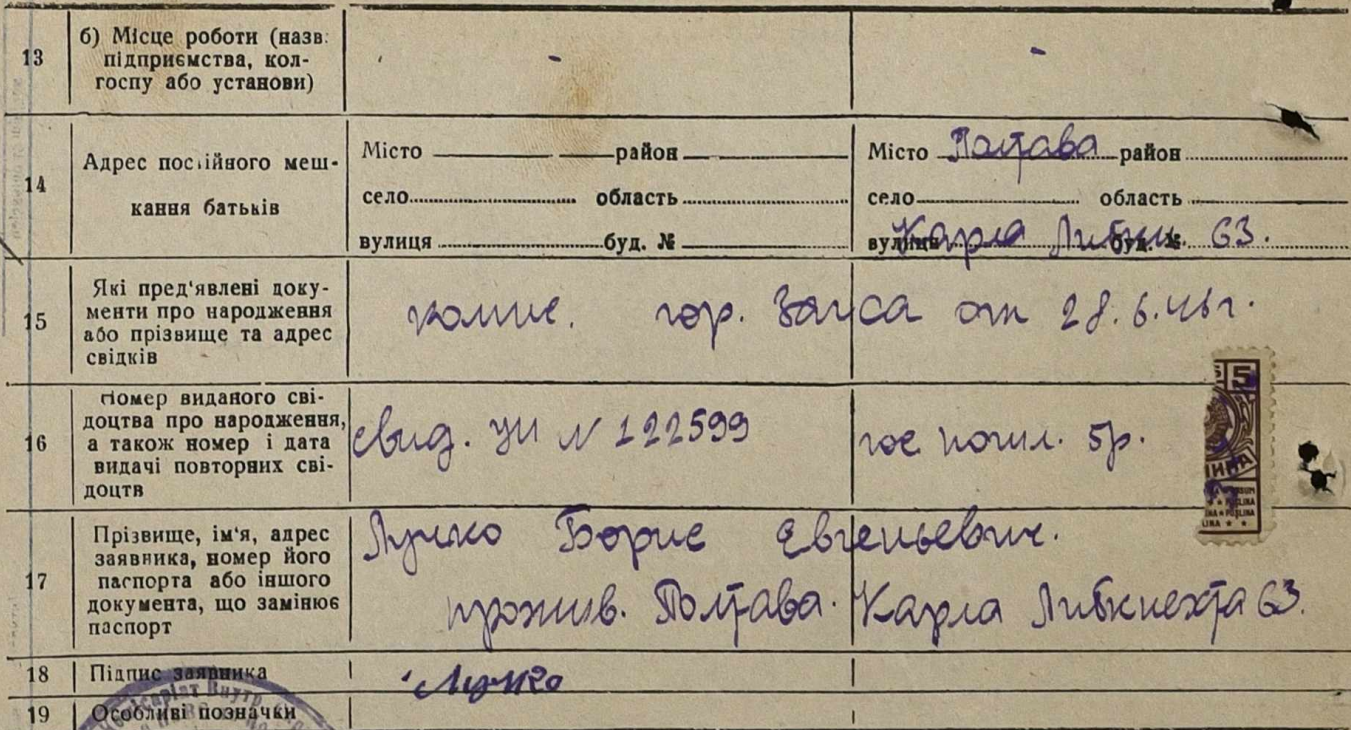 13 б) Місце роботи (назв. - -
підприємства, кол-
госпу або установи)
14 Адрес постійного меш-
кання батьків
Місто район Місто Полтава район
село область село область
вулиця буд. № вулиця Карла Либкн. буд. № 63.
15 Які пред'явлені доку-
менти про народження
або прізвище та адрес
свідків
гор. Загса от 28.6.46 г.
16 Номер виданого сві-
доцтва про народження,
а також номер і дата
видачі повторних сві-
доцтв
свид. УИ N 122599 гос. пошл. 5р.
5
17 Прізвище, ім'я, адрес
заявника, номер його
паспорта або іншого
документа, що замінює
паспорт
Лучко Борис Евгеньевич.
прожив. Полтава. Карла Либкнехта 63.
18 Підпис заявника Лучко
19 Особливі позначки